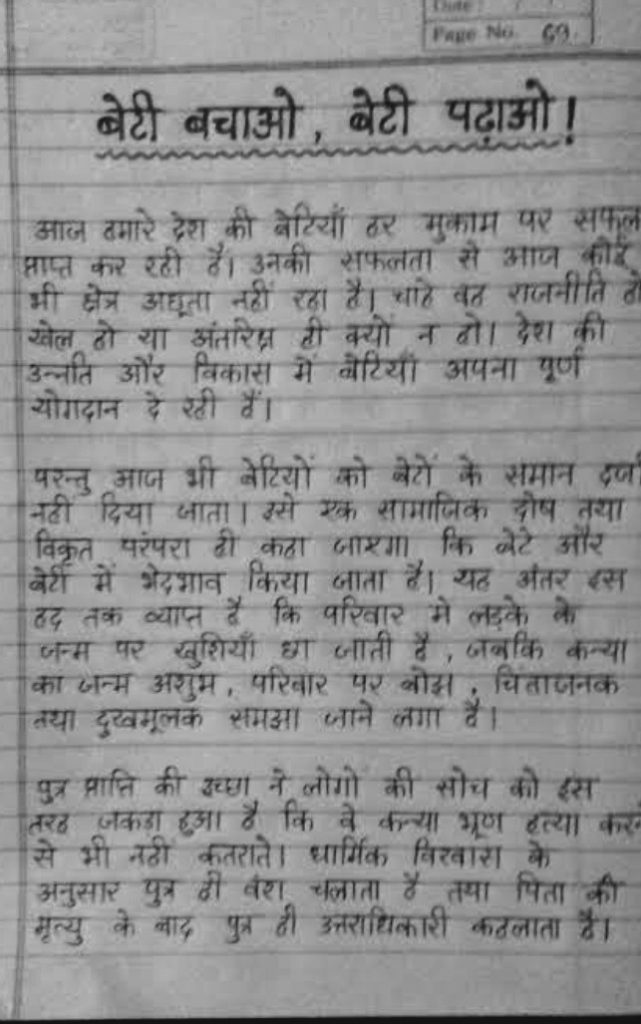 Date :
Page No. 69.
बेटी बचाओ, बेटी पढ़ाओ!
आज हमारे देश की बेटियाँ हर मुकाम पर सफल
प्राप्त कर रही है। उनकी सफलता से आज कोई
भी क्षेत्र अछूता नहीं रहा है। चाहे वह राजनीति हो
खेल हो या अंतरिक्ष ही क्यों न हो। देश की
उन्नति और विकास में बेटियाँ अपना पूर्ण
योगदान दे रही हैं।
परन्तु आज भी बेटियों को बेटों के समान दर्जा
नही दिया जाता। इसे एक सामाजिक दोष तथा
विकृत परंपरा ही कहा जाएगा कि बेटे और
बेटी में भेदभाव किया जाता है। यह अंतर इस
हद तक व्याप्त है कि परिवार मे लड़के के
जन्म पर खुशियाँ छा जाती है, जबकि कन्या
का जन्म अशुभ, परिवार पर बोझ, चिंताजनक
तथा दुखमूलक समझा जाने लगा है।
पुत्र प्राप्ति की इच्छा ने लोगो की सोच को इस
तरह जकडा हुआ है कि वे कन्या भ्रूण हत्या कर
से भी नही कतराते। धार्मिक विश्वास के
अनुसार पुत्र ही वंश चलाता है तथा पिता की
मृत्यु के बाद पुत्र ही उत्तराधिकारी कहलाता है।